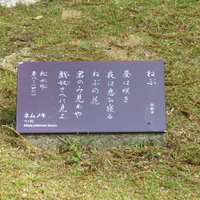 ねぶ
昼は咲き
夜は恋ひ寝る
ねぶの花
君のみ見めや
戯奴さへに見よ
紀女郎
巻八-一四六一
ネムノキ
マメ科